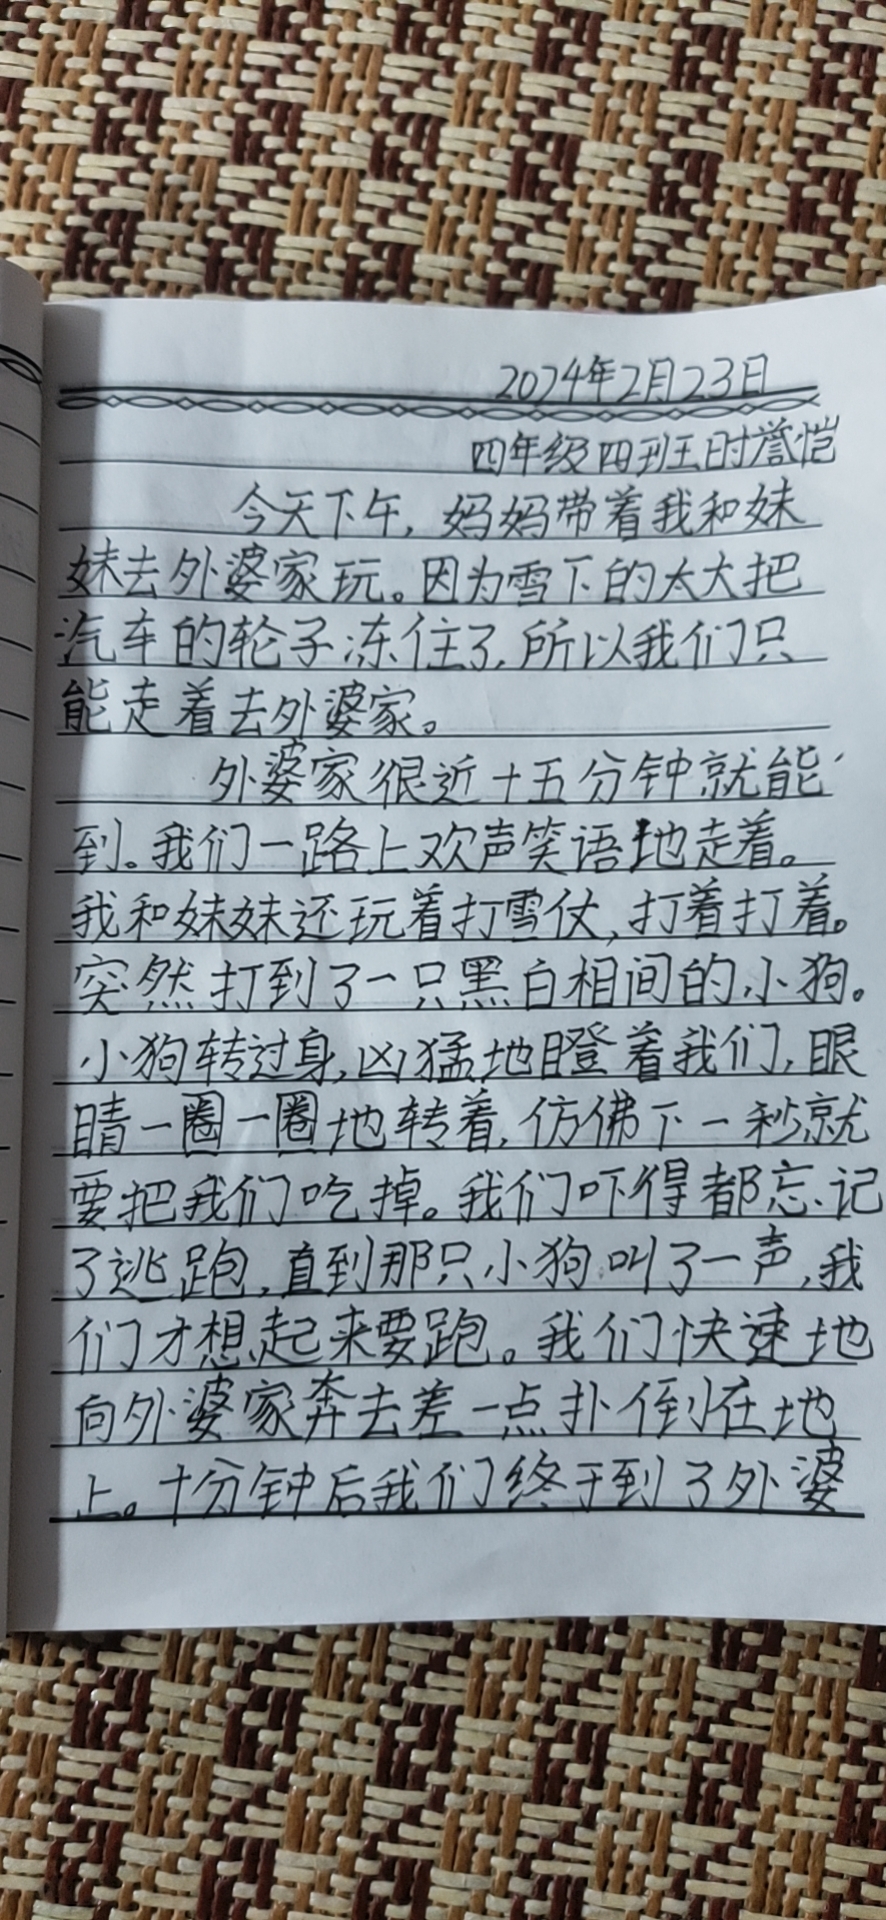 2024年2月23日
四年级四班时誉恺
今天下午,妈妈带着我和妹
妹去外婆家玩。因为雪下的太大把
汽车的轮子冻住了,所以我们只
能走着去外婆家。
外婆家很近十五分钟就能
到。我们一路上欢声笑语地走着。
我和妹妹还玩着打雪仗,打着打着。
突然打到了一只黑白相间的小狗。
小狗转过身,凶猛地瞪着我们,眼
睛一圈一圈地转着,仿佛下一秒就
要把我们吃掉。我们吓得都忘记
了逃跑,直到那只小狗叫了一声,我
们才想起来要跑。我们快速地
向外婆家奔去差一点扑倒在地
上。十分钟后我们终于到了外婆